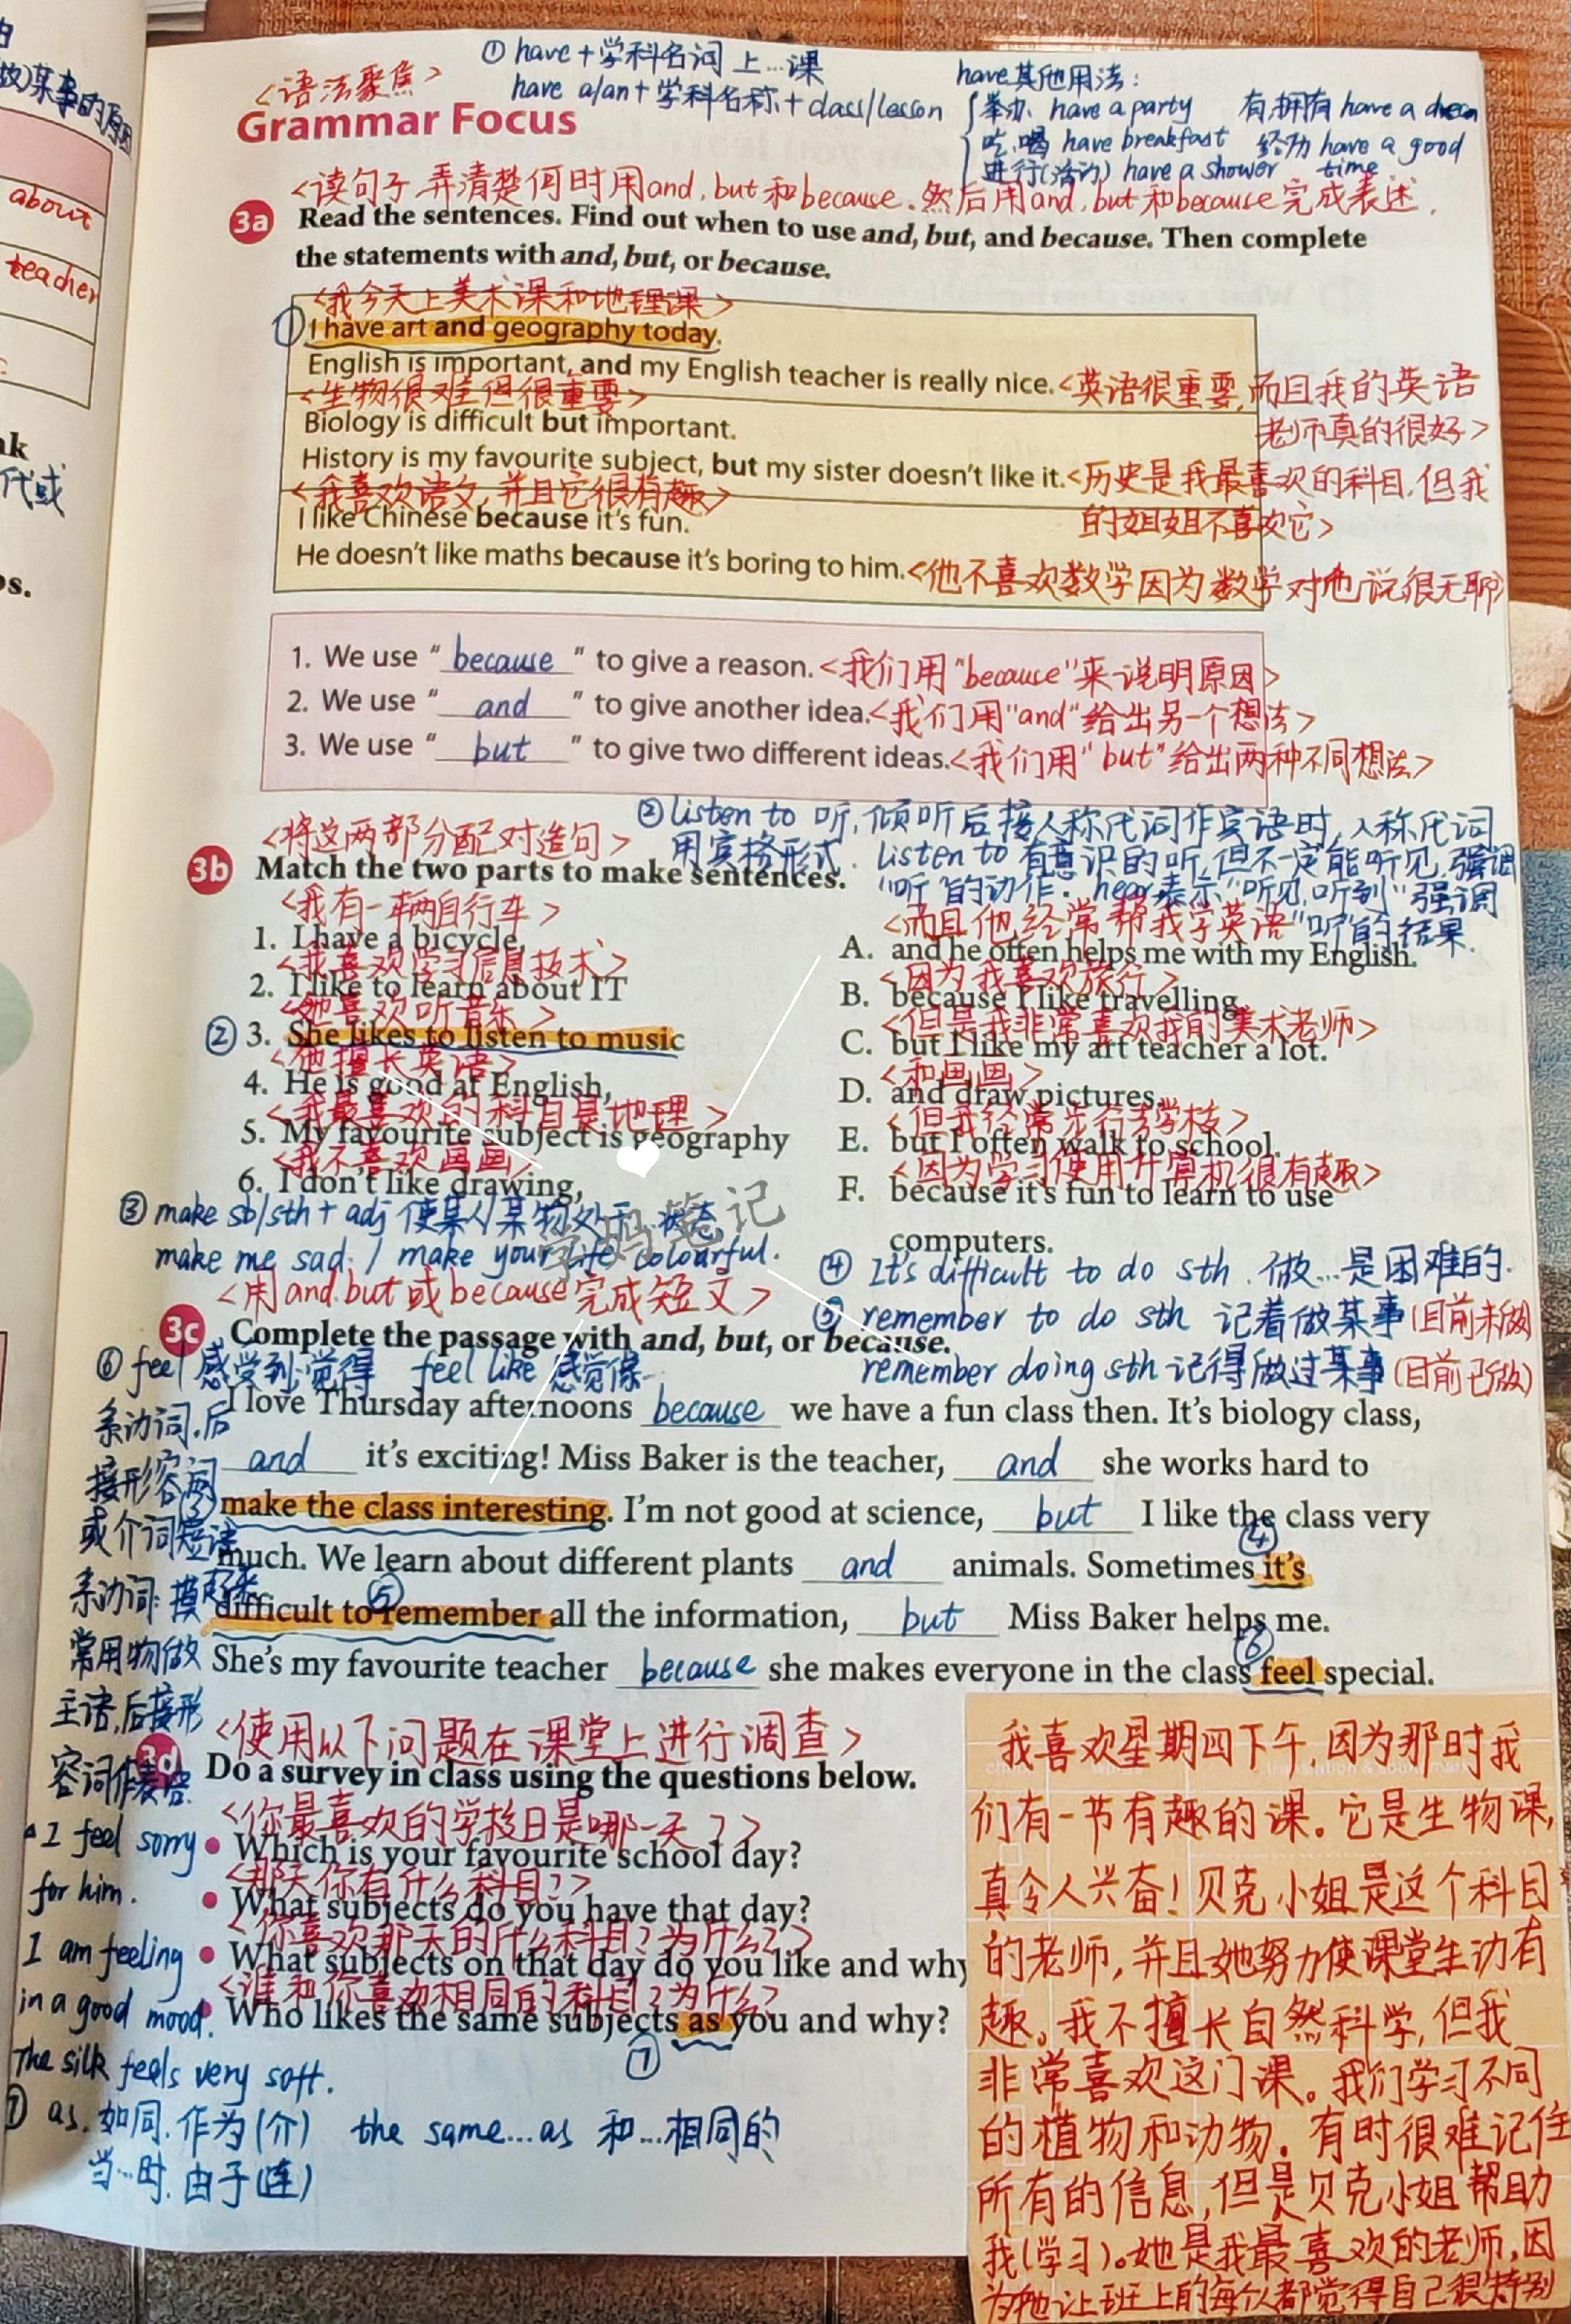 ① have+学科名词 上…课
<语法聚焦>
have a/an+学科名称+class/lesson
have其他用法:
举办 have a party 有,拥有 have a dream
吃.喝 have breakfast 经历 have a good time
进行(活动) have a shower
Grammar Focus
<读句子弄清楚何时用and,but和because.然后用and,but和because完成表述.
3a Read the sentences. Find out when to use and, but, and because. Then complete
the statements with and, but, or because.
<我今天上美术课和地理课>
① I have art and geography today.
English is important, and my English teacher is really nice. <英语很重要,而且我的英语
老师真的很好>
<生物很难但很重要>
Biology is difficult but important.
History is my favourite subject, but my sister doesn't like it. <历史是我最喜欢的科目,但我
的姐姐不喜欢它>
<我喜欢语文,并且它很有趣>
I like Chinese because it's fun.
He doesn't like maths because it's boring to him. <他不喜欢数学因为数学对他说很无聊>
1. We use " because " to give a reason. <我们用"because"来说明原因>
2. We use " and " to give another idea. <我们用"and"给出另一个想法>
3. We use " but " to give two different ideas. <我们用"but"给出两种不同想法>
② listen to 听,倾听后接人称代词作宾语时,人称代词
用宾格形式. listen to 有意识的听,但不一定能听见,强调
"听"的动作. hear表示"听见,听到"强调
"听"的结果.
<将这两部分配对造句>
3b Match the two parts to make sentences.
<我有一辆自行车>
1. I have a bicycle,
<我喜欢学习信息技术>
2. I like to learn about IT
<她喜欢听音乐>
② 3. She likes to listen to music
<他擅长英语>
4. He is good at English,
<我最喜欢的科目是地理>
5. My favourite subject is geography
<我不喜欢画画>
6. I don't like drawing,
<而且他经常帮我学英语>
A. and he often helps me with my English.
<因为我喜欢旅行>
B. because I like travelling.
<但是我非常喜欢我的美术老师>
C. but I like my art teacher a lot.
<和画画>
D. and draw pictures.
<但我经常步行去学校>
E. but I often walk to school.
<因为学习使用计算机很有趣>
F. because it's fun to learn to use
computers.
学妈笔记
③ make sb/sth+adj 使某人/某物处于…状态
make me sad. / make your life colourful.
④ It's difficult to do sth. 做…是困难的.
⑤ remember to do sth 记着做某事(目前未做)
remember doing sth 记得做过某事(目前已做)
<用and.but或because完成短文>
3c Complete the passage with and, but, or because.
⑥ feel 感受到;觉得 feel like 感觉像…
系动词,后
接形容词
或介词短语
系动词:摸起来
常用物做
主语,后接形
容词作表语.
I feel sorry
for him.
I am feeling
in a good mood.
The silk feels very soft.
I love Thursday afternoons because we have a fun class then. It's biology class,
and it's exciting! Miss Baker is the teacher, and she works hard to
③ make the class interesting. I'm not good at science, but I like the class very
much. We learn about different plants and animals. Sometimes ④ it's
difficult to ⑤ remember all the information, but Miss Baker helps me.
She's my favourite teacher because she makes everyone in the class ⑥ feel special.
<使用以下问题在课堂上进行调查>
3d Do a survey in class using the questions below.
<你最喜欢的学校日是哪一天?>
• Which is your favourite school day?
<那天你有什么科目?>
• What subjects do you have that day?
<你喜欢那天的什么科目?为什么?>
• What subjects on that day do you like and why
<谁和你喜欢相同的科目?为什么?
• Who likes the same subjects as you and why?
⑦
⑦ as.如同.作为(介) the same…as 和…相同的
当…时.由于(连)
我喜欢星期四下午,因为那时我
们有一节有趣的课。它是生物课,
真令人兴奋!贝克小姐是这个科目
的老师,并且她努力使课堂生动有
趣。我不擅长自然科学,但我
非常喜欢这门课。我们学习不同
的植物和动物.有时很难记住
所有的信息,但是贝克小姐帮助
我(学习)。她是我最喜欢的老师,因
为她让班上的每个人都觉得自己很特别
about
teacher